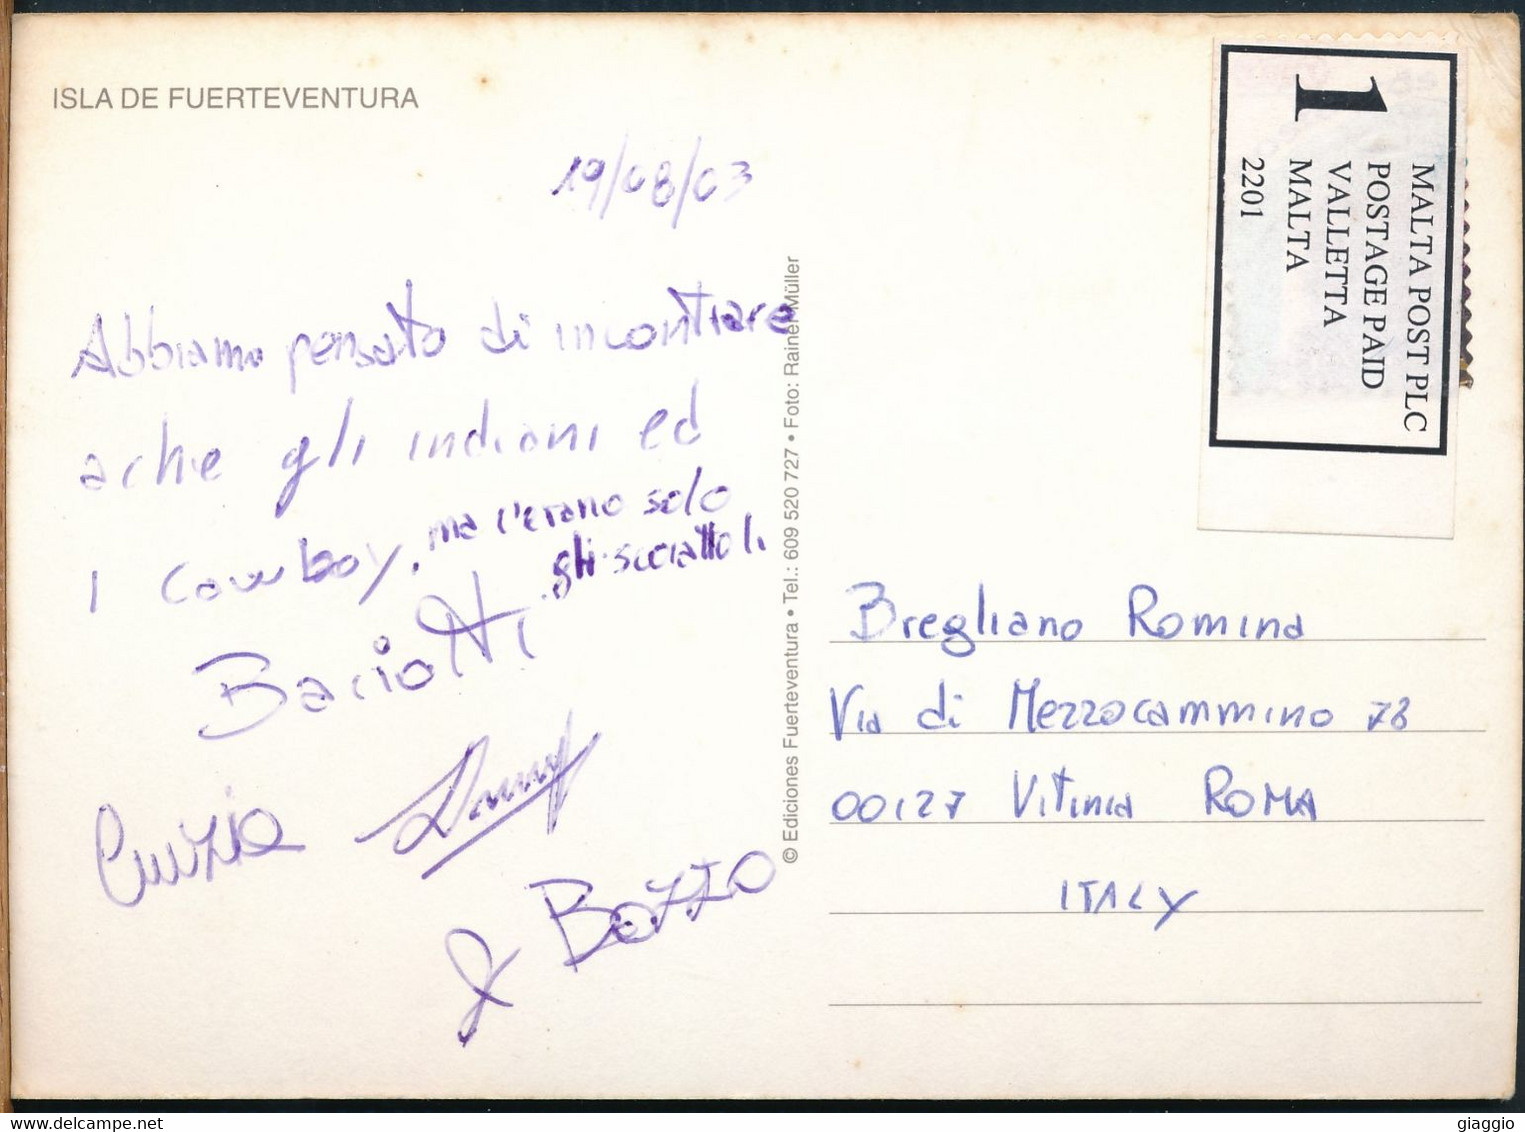 ISLA DE FUERTEVENTURA
19/08/03
Abbiamo pensato di incontrare
ache gli indiani ed
I Cowboy, ma c'erano solo
gli scoiattoli
Baciotti
Cinzia
Danny
& Bozzo
© Ediciones Fuerteventura • Tel.: 609 520 727 • Foto: Rainer Müller
1
MALTA POST PLC
POSTAGE PAID
VALLETTA
MALTA
2201
Bregliano Romina
Via di Mezzocammino 78
00127 Vitinia ROMA
ITALY
giaggio